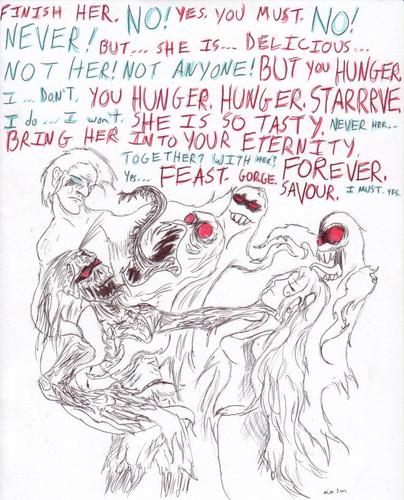 FINISH HER. NO! YES. YOU MUST. NO!
NEVER! BUT... SHE IS... DELICIOUS...
NOT HER! NOT ANYONE! BUT YOU HUNGER.
I... DON'T. YOU HUNGER. HUNGER. STARRRVE.
I do... I won't. SHE IS SO TASTY. NEVER HER...
BRING HER INTO YOUR ETERNITY.
TOGETHER? WITH HER? FOREVER.
YES... FEAST. GORGE. SAVOUR. I MUST. YES.